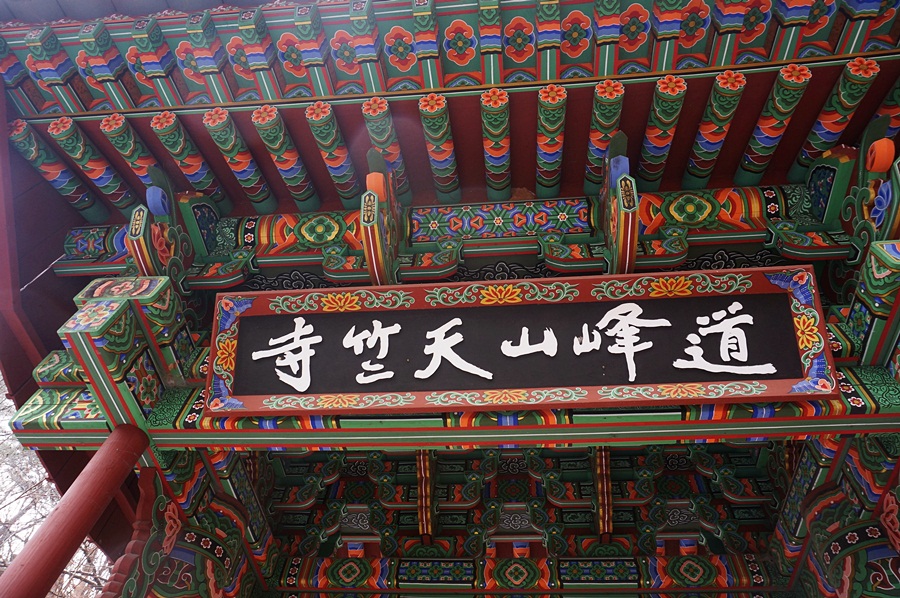 道峰山天竺寺